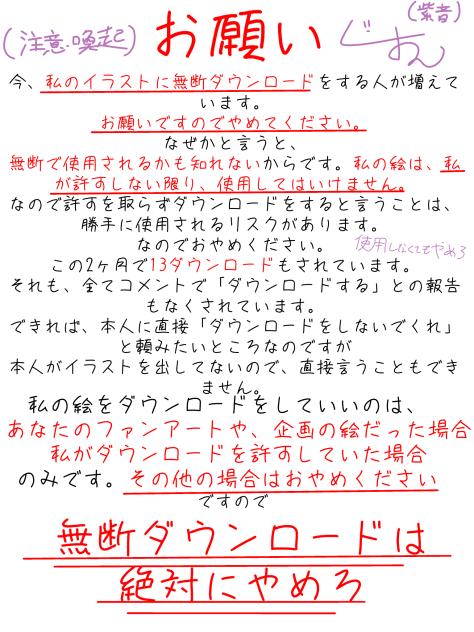 (注意・喚起) お願い (紫音)
じおん
今、私のイラストに無断ダウンロードをする人が増えて
います。
お願いですのでやめてください。
なぜかと言うと、
無断で使用されるかも知れないからです。私の絵は、私
が許すしない限り、使用してはいけません。
なので許すを取らずダウンロードをすると言うことは、
勝手に使用されるリスクがあります。
なのでおやめください。 使用しなくてもやめろ
この2ヶ月で13ダウンロードもされています。
それも、全てコメントで「ダウンロードする」との報告
もなくされています。
できれば、本人に直接「ダウンロードをしないでくれ」
と頼みたいところなのですが
本人がイラストを出してないので、直接言うこともでき
ません。
私の絵をダウンロードをしていいのは、
あなたのファンアートや、企画の絵だった場合
私がダウンロードを許すしていた場合
のみです。その他の場合はおやめください
ですので
無断ダウンロードは
絶対にやめろ